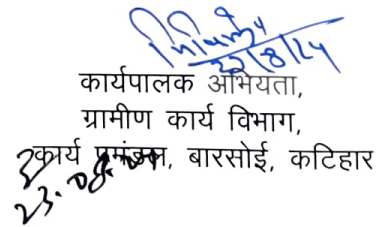 22/8/24
कार्यपालक अभियता,
ग्रामीण कार्य विभाग,
कार्य प्रमंडल, बारसोई, कटिहार
23.08.